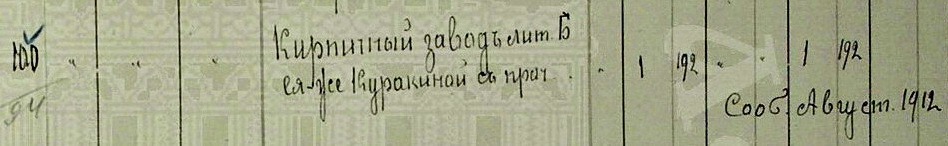 100 " " " Кирпичный заводъ лит. Б " 1 192 " " 1 192
94 ея-же Куракиной съ проч.
Сооб. Август. 1912